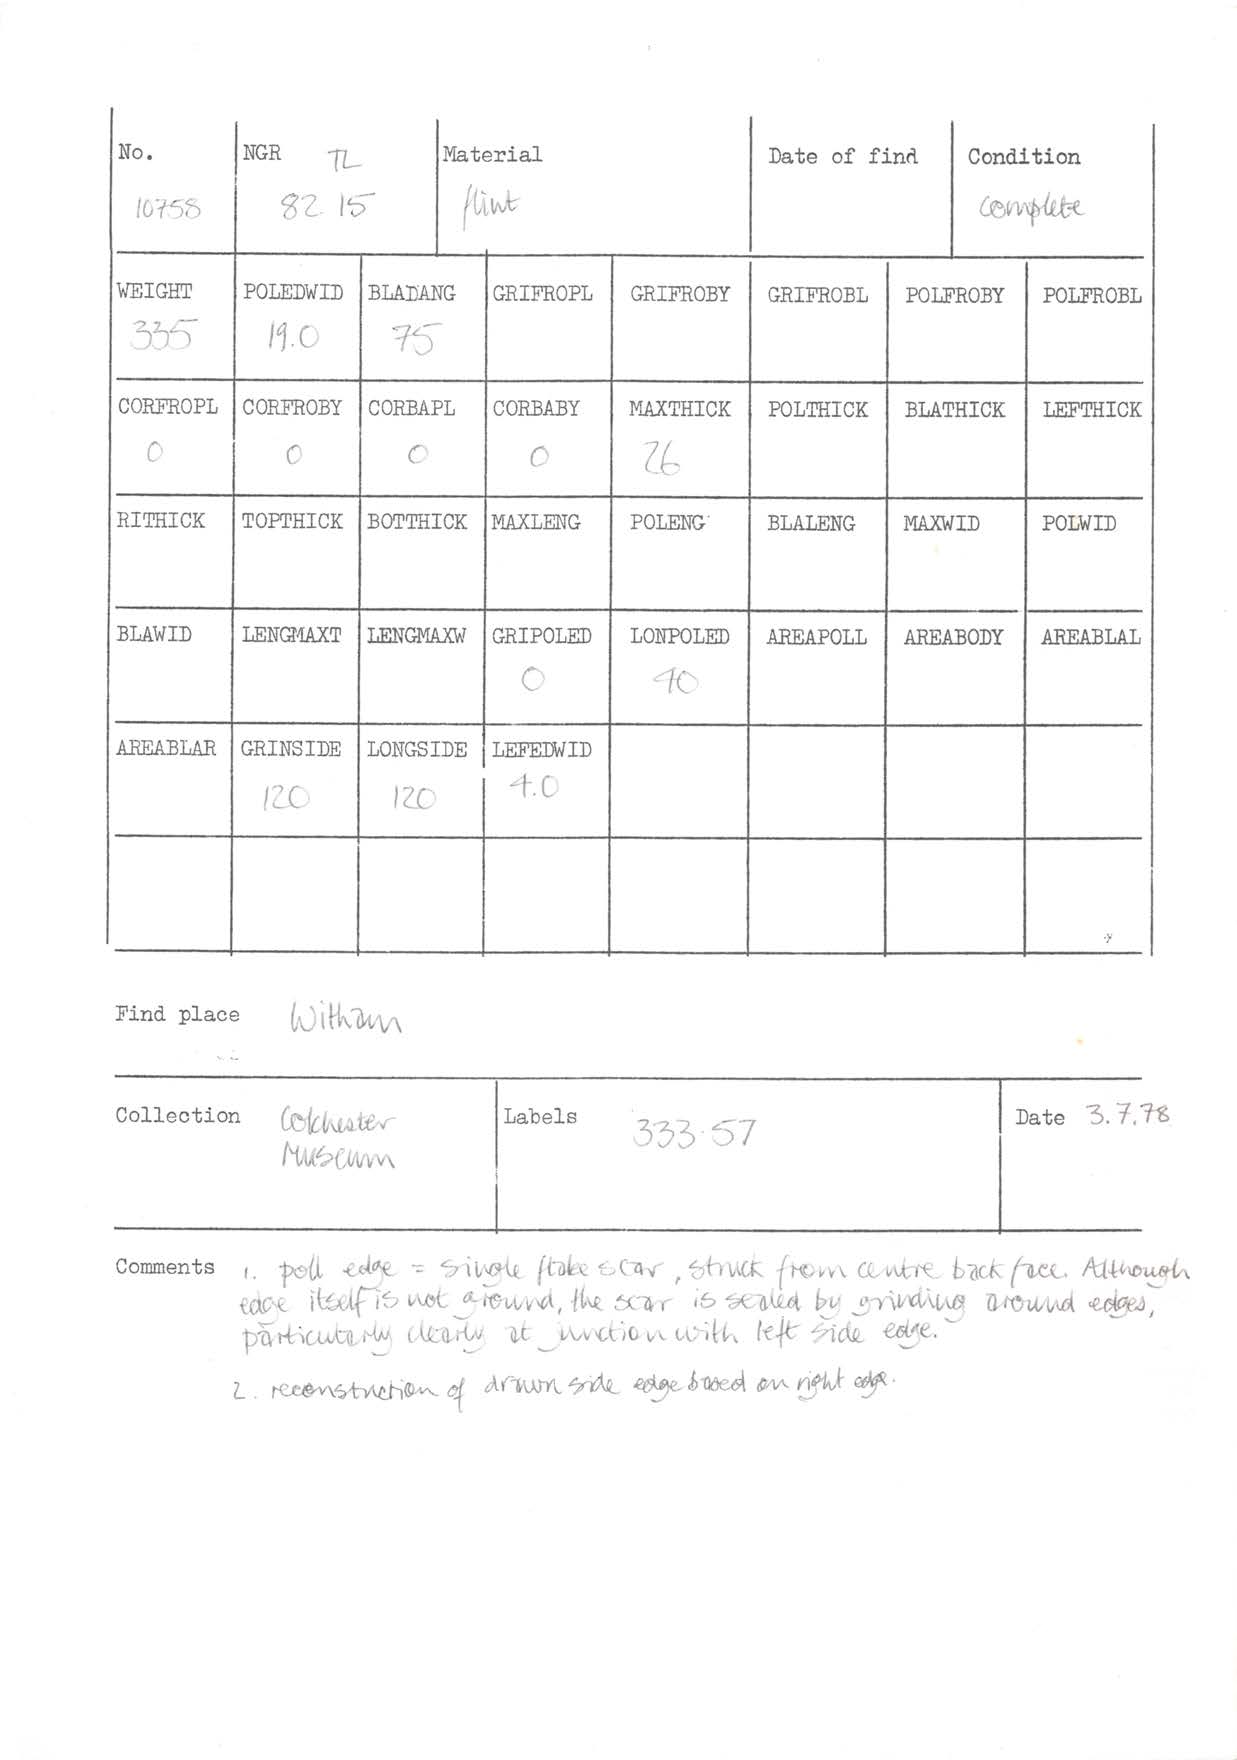 No. NGR TL Material Date of find Condition
10758 82 15 flint complete
WEIGHT POLEDWID BLADANG GRIFROPL GRIFROBY GRIFROBL POLFROBY POLFROBL
335 19.0 75
CORFROPL CORFROBY CORBAPL CORBABY MAXTHICK POLTHICK BLATHICK LEFTHICK
0 0 0 0 26
RITHICK TOPTHICK BOTTHICK MAXLENG POLENG BLALENG MAXWID POLWID
BLAWID LENGMAXT LENGMAXW GRIPOLED LONPOLED AREAPOLL AREABODY AREABLAL
0 40
AREABLAR GRINSIDE LONGSIDE LEFEDWID
120 120 4.0
Find place Witham
Collection Colchester Labels 333.57 Date 3.7.78
Museum
Comments 1. poll edge = single flake scar, struck from centre back face. Although
edge itself is not ground, the scar is sealed by grinding around edges,
particularly clearly at junction with left side edge.
2. reconstruction of drawn side edge based on right edge.